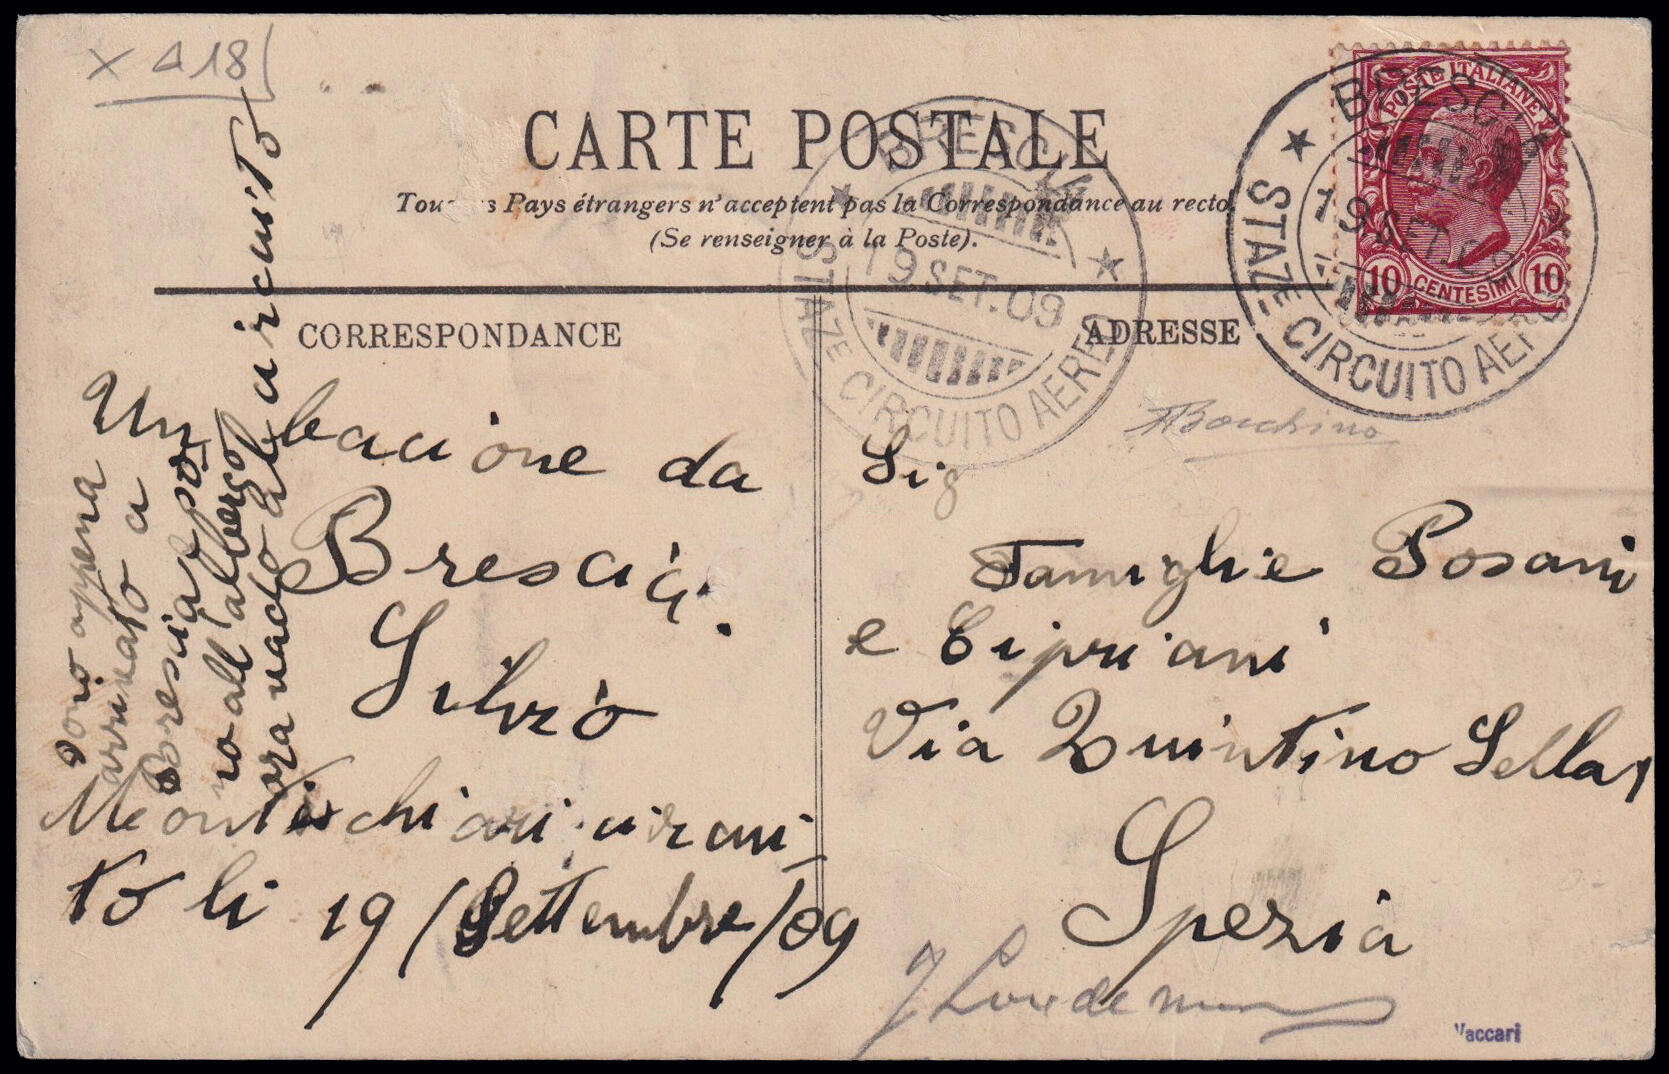 X A 18
CARTE POSTALE
Tous Pays étrangers n'acceptent pas la Correspondance au recto
(Se renseigner à la Poste).
CORRESPONDANCE
ADRESSE
BRESCIA
19 SET. 09
STAZE CIRCUITO AEREO
BRESCIA
19 SET. 09
STAZE CIRCUITO AEREO
POSTE ITALIANE
10 CENTESIMI 10
Un bacione da
Brescia.
Silvio
Montechiari circui
to li 19/Settembre/09
Sono appena
arrivato a
Brescia e so
no all'albergo
ora vado al circuito
Bocchino
Sig
Famiglie Posani
e Cipriani
Via Quintino Sella 1
Spezia
Vaccari